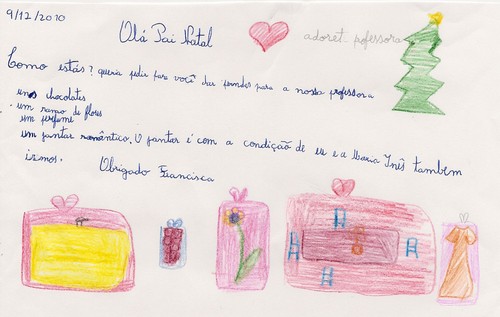 9/12/2010
Olá Pai Natal
adoret. pofessora
Como estás? queria pedir para você dar prendas para a nossa professora
uns chocolates
um ramo de flores
um perfume
um jantar romântico. O jantar é com a condição de eu e a Maria Inês tambem
irmos.
Obrigado Francisca